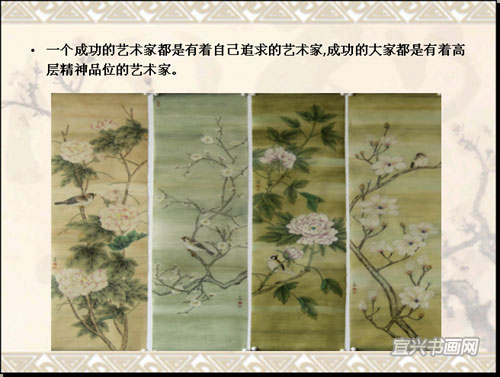 • 一个成功的艺术家都是有着自己追求的艺术家,成功的大家都是有着高
层精神品位的艺术家。
宜兴书画网